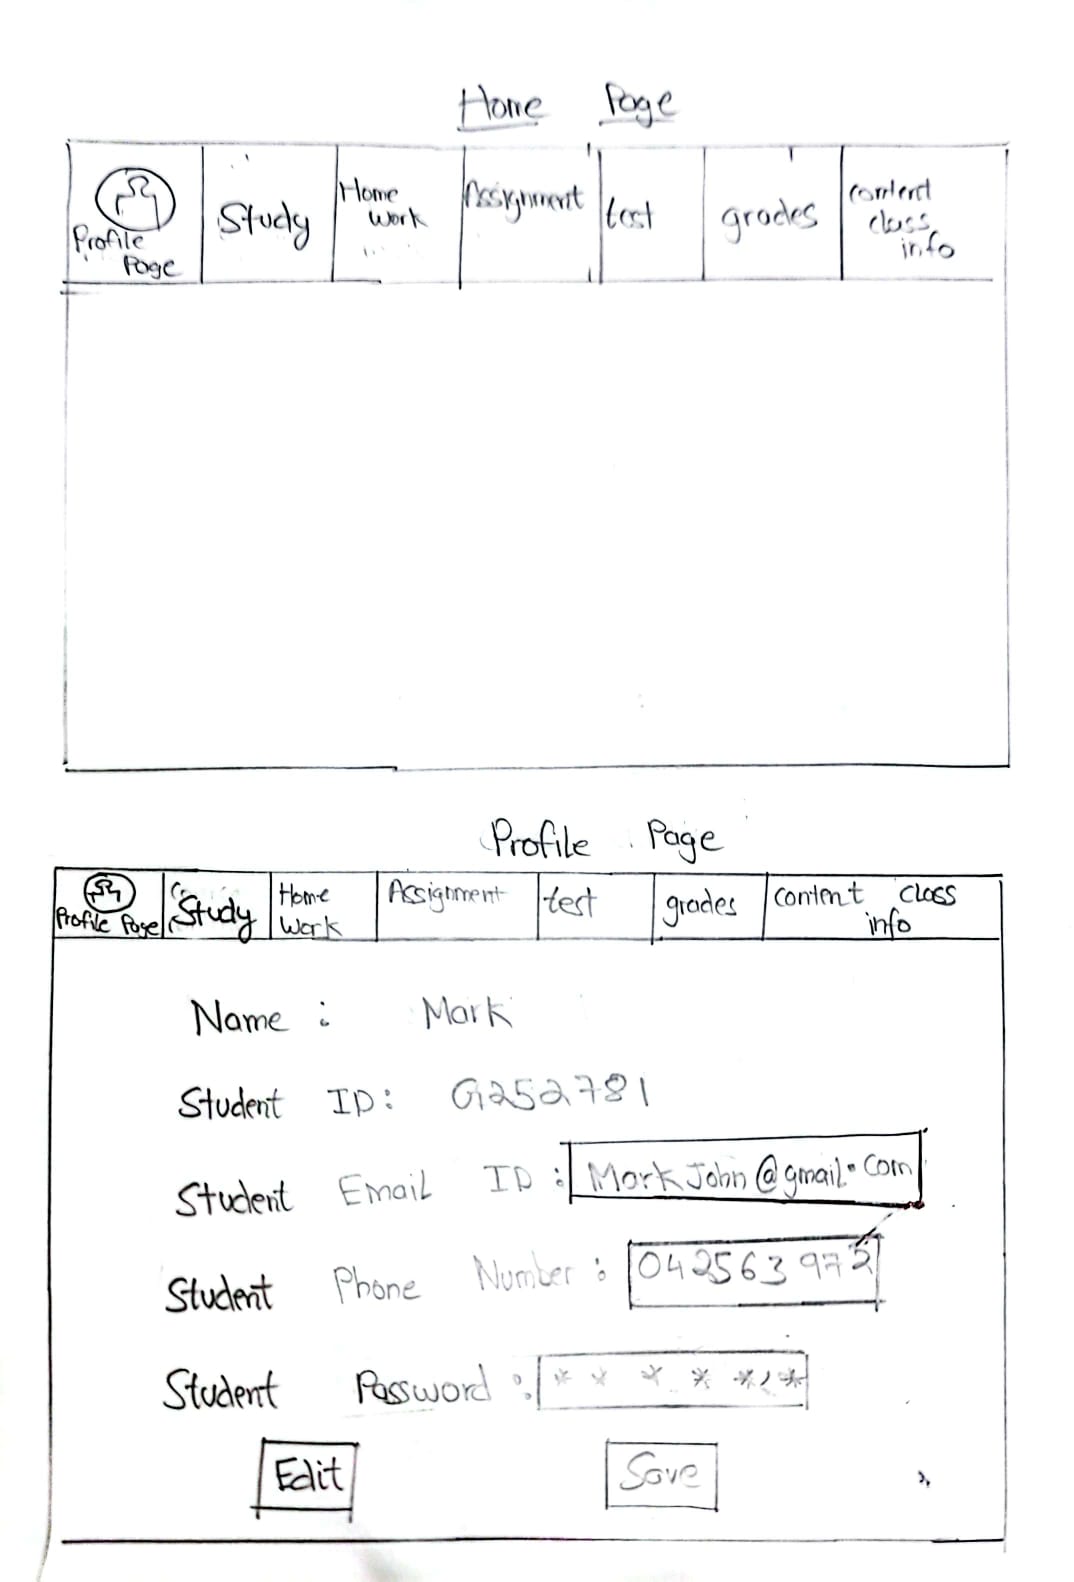 Home Page
Profile Page
Study
Home Work
Assignment
test
grades
content class info
Profile Page
Profile Page
Study
Home Work
Assignment
test
grades
content class info
Name : Mark
Student ID: G252781
Student Email ID : MarkJohn@gmail.com
Student Phone Number : 042563972
Student Password : * * * * * *
Edit
Save